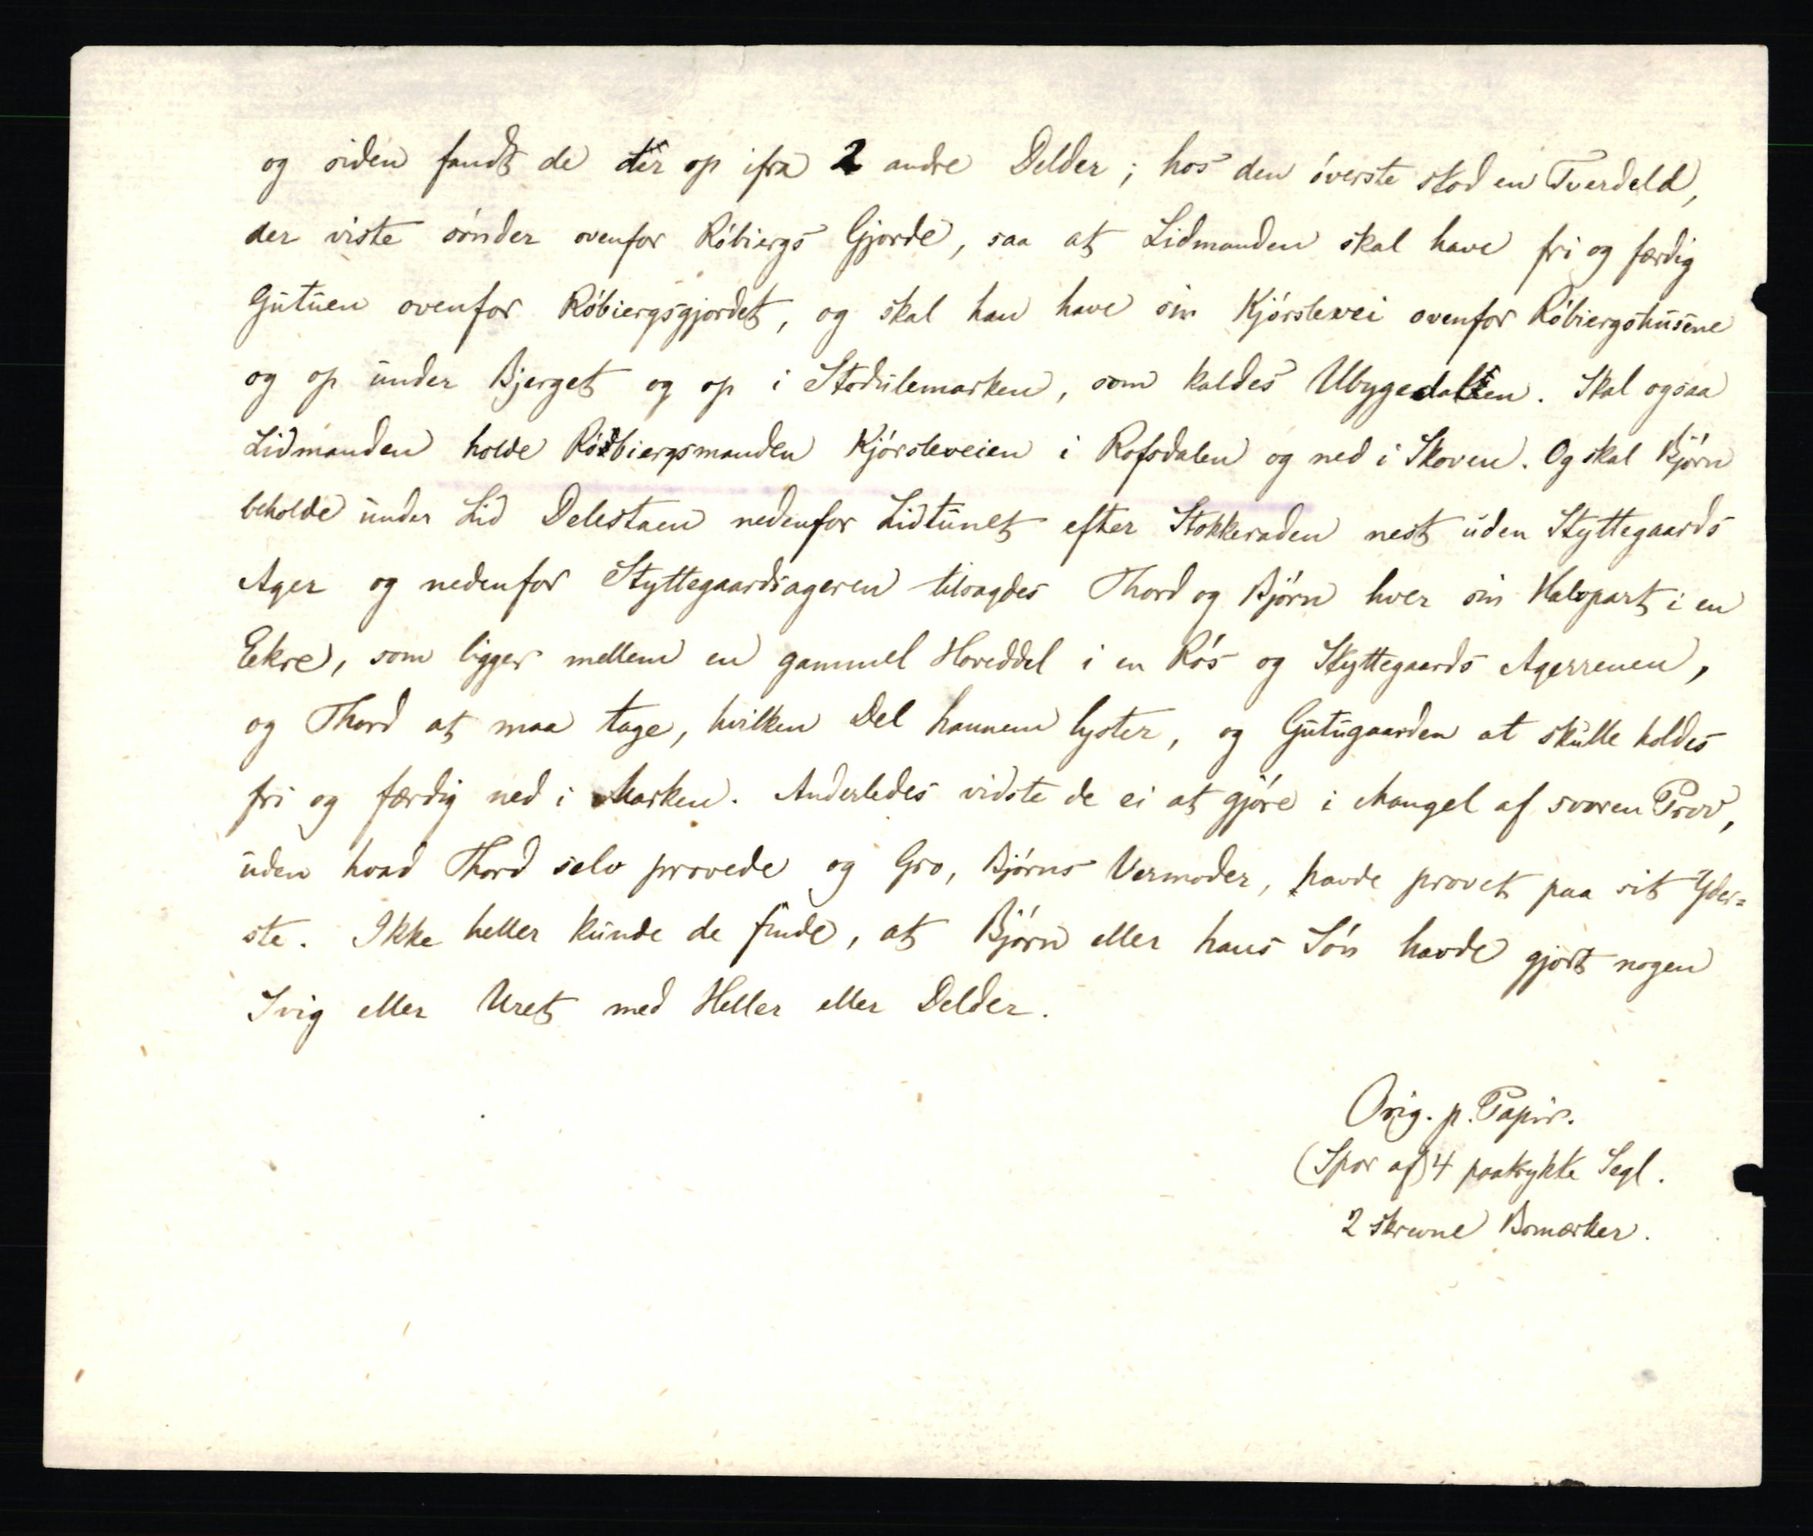 og siden fandt de der op ifra 2 andre Delder; hos den óverste stod en Tverdeld,
der viste sónder ovenfor Róbiergs Gjorde, saa at Lidmanden skal have fri og færdig
Gutuen ovenfor Róbiergsgjordet, og skal han have sin Kjórslevei ovenfor Róbiergshusene
og op under Bjerget og op i Stodulemarken, som kaldes Ubygedalen. Skal ogsaa
Lidmanden holde Róbiergsmanden Kjórsleveien i Rofsdalen og ned i Skoven. Og skal Bjórn
beholde under Lid Delestaen nedenfor Lidtunet efter Stokkeraden nest uden Styttegaards
Ager og nedenfor Styttegaardsageren tilsagdes Thord og Bjórn hver sin Halvpart i en
Eekre, som ligger mellem en gammel Hoveddel i en Rós og Styttegaards Agerrenen,
og Thord at maa tage, hvilken Del hannem lyster, og Gutugaarden at skulle holdes
fri og færdig ned i Marken. Anderledes vidste de ei at gjóre i Mangel af svoren Prov,
uden hvad Thord selv provede og Gro, Bjórns Vermoder, havde provet paa sit Yder=
ste. Ikke heller kunde de finde, at Bjórn eller hans Són havde gjort nogen
Svig eller Uret med Heller eller Delder.
Orig. p. Papir.
(Spor af) 4 paatrykte Segl.
2 skrevne Bomærker.